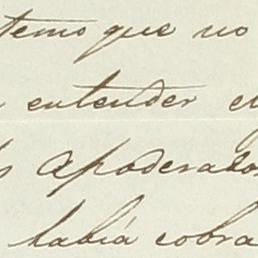 temo que no
entender e
Apoderado
había cobra